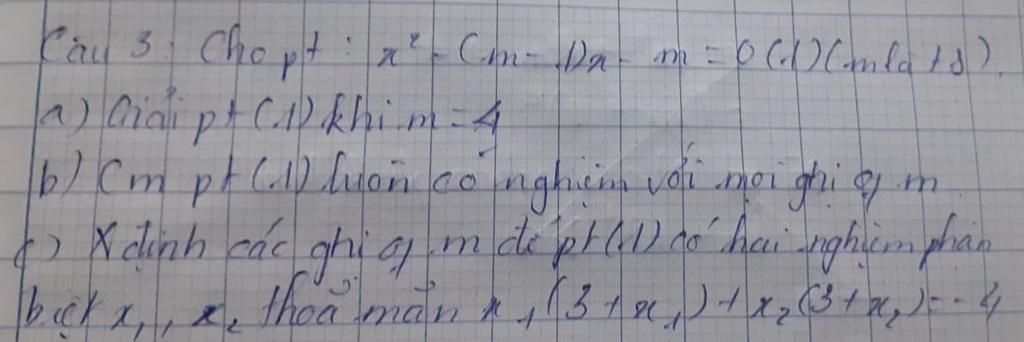 Câu 3: Cho pt: x² - (m - 1)x - m = 0 (1) (m là t/s).
a) Giải pt (1) khi m = 4
b) Cm pt (1) luôn có nghiệm với mọi ghi of m
c) Xđịnh các ghi of m để pt (1) có hai nghiệm phân
biệt x₁, x₂ thoả mãn x₁(3 + x₁) + x₂(3 + x₂) = -4